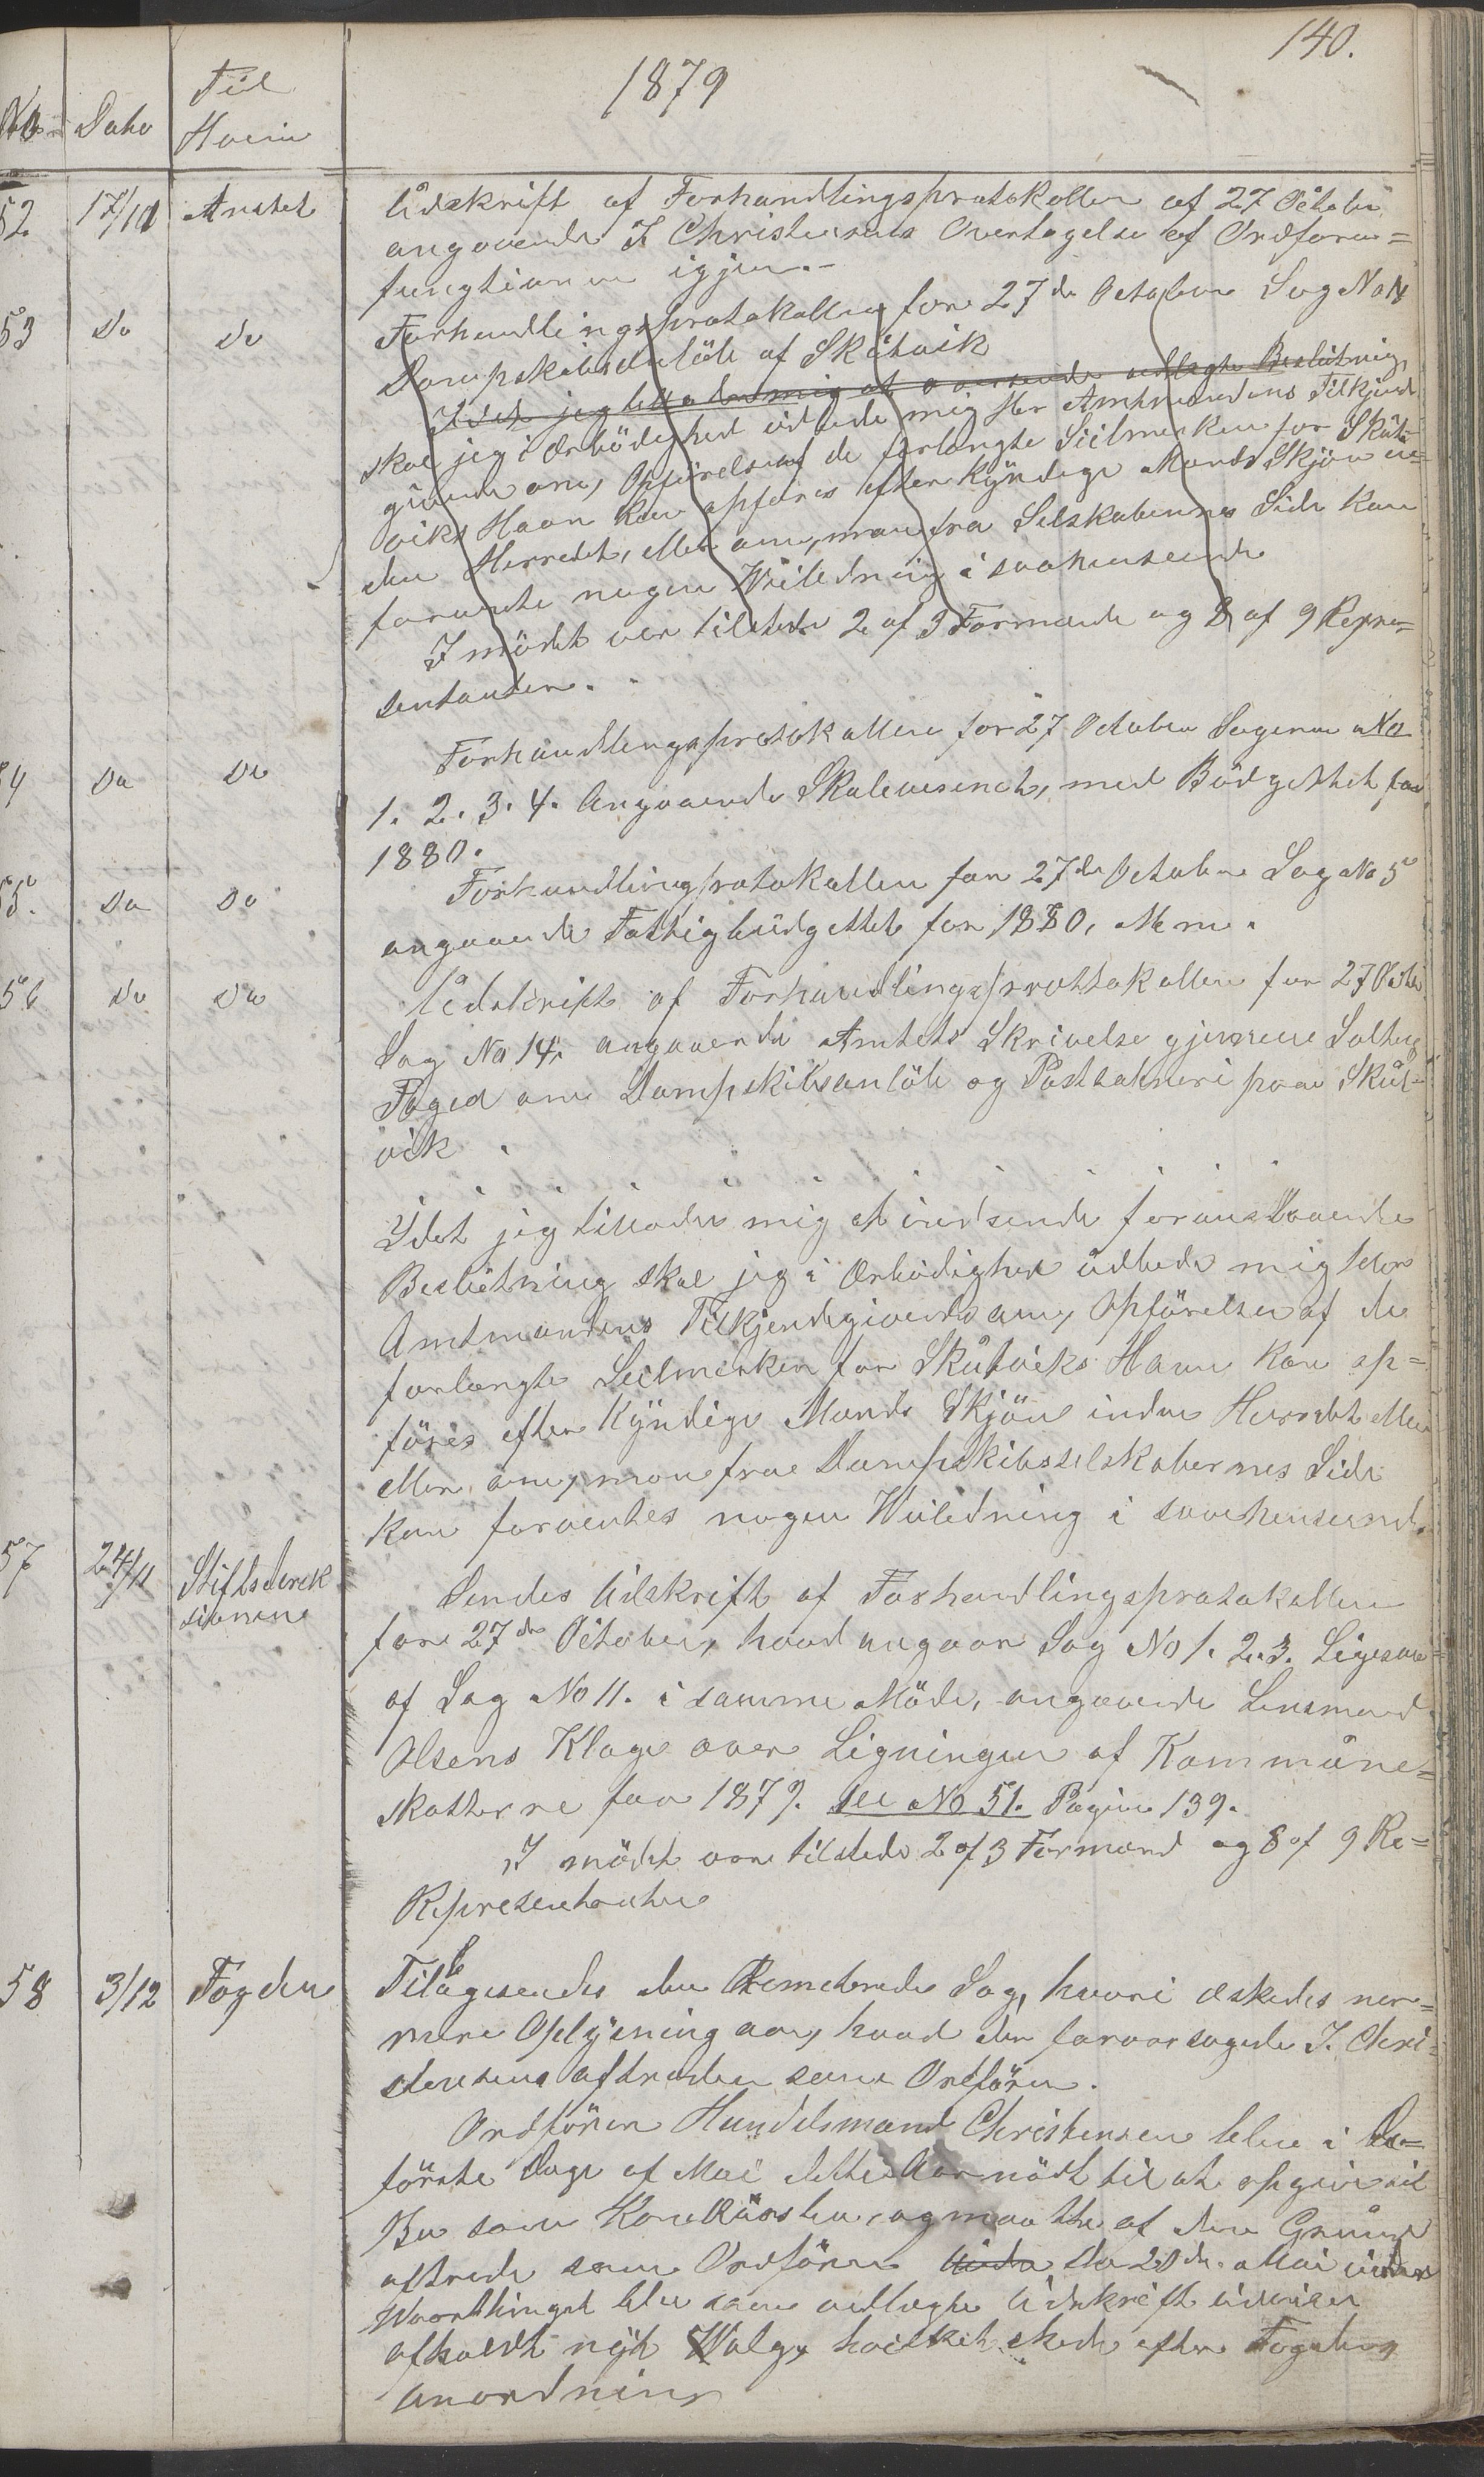 140.
1879
No Dato Til Hvem
52. 17/11 Amtet Udskrift af Forhandlingsprotokollen af 27 October
angaaende J Christensens Overtagelse af Ordförer=
fungtionen igjen.-
53 Do Do Forhandlingsprotokollen for 27de October Sag No 14
Dampskibsanlöb af Skutvik
Idet jeg tillader mig at oversende vedlagte Beslutning,
skal jeg i Ærbödighed udbede mig Hr Amtmandens Tilkjende
givende om, Opförelsen af de forlangte Seilmerker for Skut-
viks Havn kan opföres efter Kyndige Mænds Skjön in=
den Herredet, eller om, man fra Selskabernes Side kan
forvente nogen Veiledning i saahenseende
I mödet var tilstede 2 af 3 Formænd og 8 af 9 Repre=
sentanter.
54 Do Do Forhandlingsprotokollen for 27 October Sagerne No
1. 2. 3. 4. Angaaende Skolevesenet, med Budgettet for
1880.
55. Do Do Forhandlingprotokollen for 27de October Sag No 5
angaaende Fattigbudgettet for 1880, M. m.
56 Do Do Udskrift af Forhandlingsprottokollen for 27 Octbr
Sag No 14, angaaende Amtets Skrivelse gjennem Saltens
Foged om Dampskibsanlöb og Postaabneri paa Skut=
vik.
Idet jeg tillader mig at indsende foranstaaende
Beslutning skal jeg i Ærbödighed udbede mig Herr
Amtmandens Tilkjendegivende om, Opförelsen af de
forlangte Seilmerker for Skutviks Havn kan op=
föres efter Kyndige Mænds Skjön inden Herredet eller
eller om, man fra Dampskibsselskabernes Side
kan forventes nogen Veiledning i saahenseende.
57 24/11 Stiftsdirek
tionen Sendes Udskrift af Forhandlingsprotokollen
for 27de October, hvad angaar Sag No 1. 2. 3. Ligesom
af Sag No 11. i samme Möde, angaaende Lensmand
Olsens Klage over Ligningen af Kommune=
skatterne for 1879. see No 51. Pagina 139.
I mödet var tilstede 2 af 3 Formænd og 8 af 9 Re=
Representanter
58 3/12 Fogden Tilbagesendes den Remeterede Sag, hvori æskedes ner=
mere Oplysning om, hvad der foraarsagede J. Chri=
stensens aftræden som Ordförer.
Ordförer Handelsmand Christensen blev i De=
förste Dage af Mai dette Aar nödt til at opgive sit
Bo som Konkursbo, og maatte af den Grund
aftrede som Ordförer da 20de Mai
Vaarthinget blev som vedlagte Udskrift udviser
afholdt nyt Valg, hvilket skede efter Fogdens
anordning